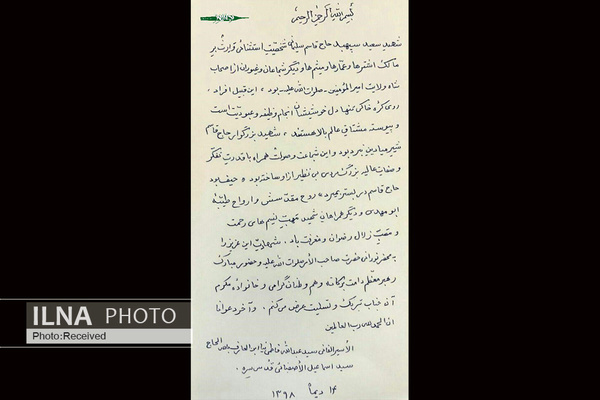 بسم الله الرحمن الرحیم
شهید سعید سپهبد حاج قاسم سلیمانی شخصیت استثنائی و وارث بر
مالک اشترها و عمارها و میثم‌ها و دیگر شجاعان و غیوران از اصحاب
شاه ولایت امیرالمؤمنین ـ صلوات الله علیه ـ بود، این قبیل افراد،
روی کره خاکی تنها دل خوشیشان انجام وظیفه و عبودیت است
و پیوسته مشتاق عالم بالا هستند، شهید بزرگوار حاج قاسم
شیر میادین نبرد بود و این شجاعت و صولت همراه با قدرت تفکر
و صفات عالیه بزرگمردی بی نظیر از او ساخته بود و حیف بود
حاج قاسم در بستر بمیرد، روح مقدسش و ارواح طیبه
ابو مهدی و دیگر همراهان شهید مهبّ نسیم های رحمت
و مصبّ زلال رضوان و مغفرت باد. شهادت این عزیز را
به محضر نورانی حضرت صاحب الأمر صلوات الله علیه و حضور مبارک
رهبر معظم دامت برکاته و هم وطنان گرامی و خانواده مکرم
آن جناب تبریک و تسلیت عرض می‌کنم، و آخر دعوانا
ان الحمد لله رب العالمین
الأسیر الفانی سید عبدالله فاطمی نیا ابن العارف بالله الحاج
سید اسماعیل الأصفیائی قدس سره.
۱۴ دیماه ۱۳۹۸
ILNA PHOTO
Photo:Received